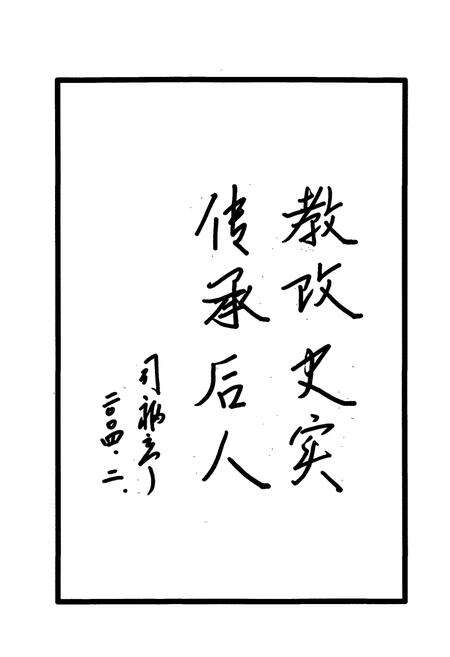 教改史实
传承后人
二〇〇四.二.